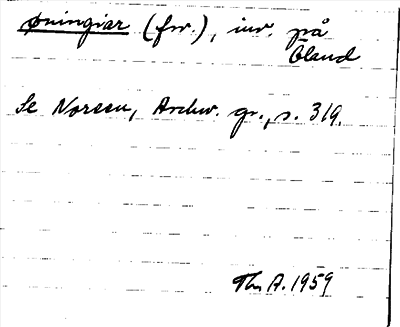 øningiar (fsv.), inv. på
Öland
Se Noreen, Aschw. gr., s. 319.
Th. A. 1959